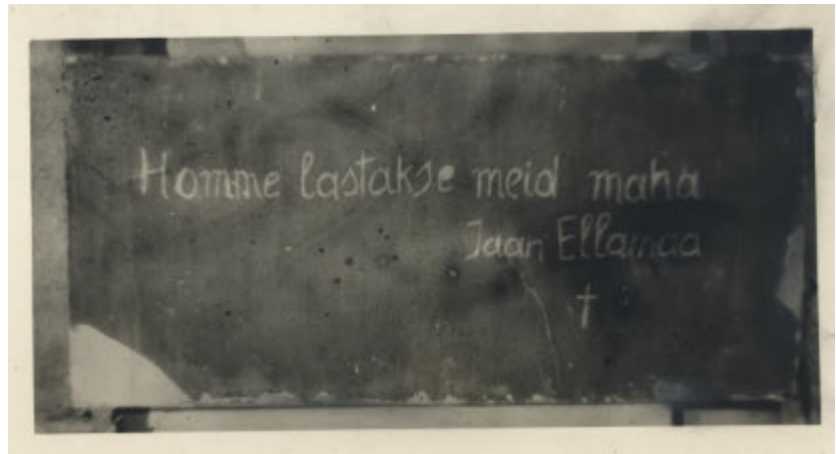 Homme lastakse meid maha
Jaan Ellamaa
†